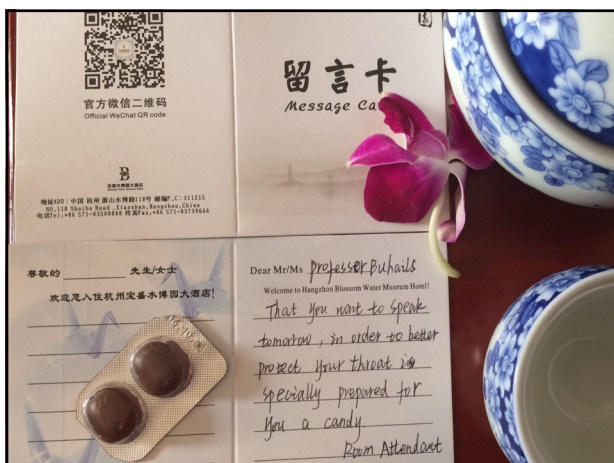 官方微信二维码
Official WeChat QR code
留言卡
Message Ca
宝盛水博园大酒店
地址ADD:中国 杭州 萧山水博路118号 邮编P.C:311215
NO.118 Shuibo Road ,Xiaoshan,Hangzhou,China
电话Tel.+86 571-83500888 传真Fax.+86 571-83739666
尊敬的 先生/女士
欢迎您入住杭州宝盛水博园大酒店!
Dear Mr/Ms professor Buhails
Welcome to Hangzhou Blossom Water Museum Hotel!
That you want to speak
tomorrow, in order to better
protect your throat is
specially prepared for
you a candy
Room Attendant